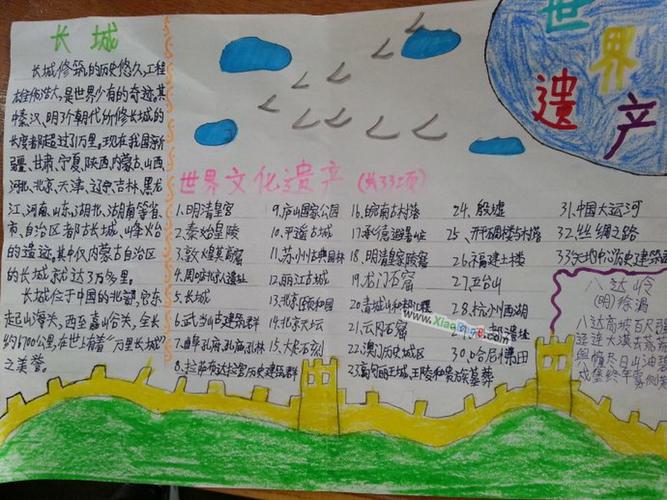 长城
长城修筑的历史悠久,工程
雄伟浩大,是世界少有的奇迹。其
中秦汉、明3个朝代所修长城的
长度都超过了1万里。现在我国新
疆、甘肃、宁夏、陕西、内蒙古、山西
河北、北京、天津、辽宁、吉林、黑龙
江、河南、山东、湖北、湖南等省
市、自治区都有古长城、烽火台
的遗迹。其中仅内蒙古自治区
的长城就达3万多里。
长城位于中国的北部,它东
起山海关,西至嘉峪关,全长
约6700公里,在世上有着“万里长城”
之美誉。
世界遗产
世界文化遗产(共33项)
1.明清皇宫
2.秦始皇陵
3.敦煌莫高窟
4.周口北京人遗址
5.长城
6.武当山古建筑群
7.曲阜孔府,孔庙,孔林
8.拉萨布达拉宫历史建筑群
9.庐山国家公园
10.平遥古城
11.苏州古典园林
12.丽江古城
13.北京颐和园
14.北京天坛
15.大足石刻
16.皖南古村落
17.承德避暑山庄
18.明清皇家陵寝
19.龙门石窟
20.青城山和都江堰
21.云冈石窟
22.澳门历史城区
23.高句丽王城、王陵和贵族墓葬
24.殷墟
25.开平碉楼与村落
26.福建土楼
27.五台山
28.杭州西湖
遗址
30.哈尼梯田
31.中国大运河
32.丝绸之路
33.天地中心历史建筑
八达岭
(明)徐渭
八达高坡百尺
径连大漠去